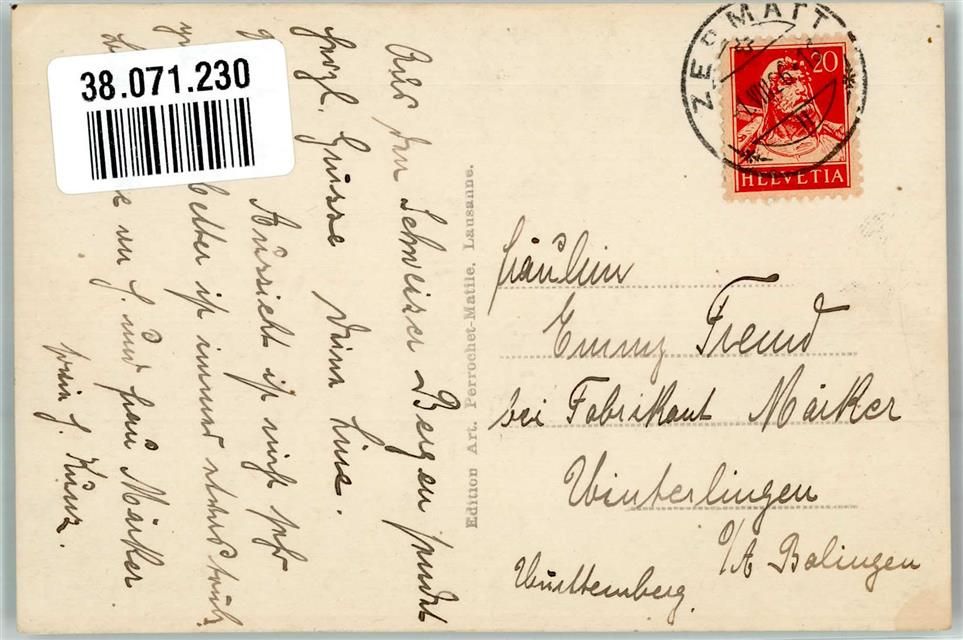 38.071.230
Aus den Schweizer Bergen sendet
herzl. Grüsse Deine Line.
Aussicht ist nicht sehr
ist immer etwas trüb.
H. und Frau Märker
H. Kunz.
Edition Art. Perrochet-Matile, Lausanne.
ZERMATT
20
HELVETIA
Fräulein
Emmy Freund
bei Fabrikant Märker
Winterlingen
O/A Balingen
Württemberg.